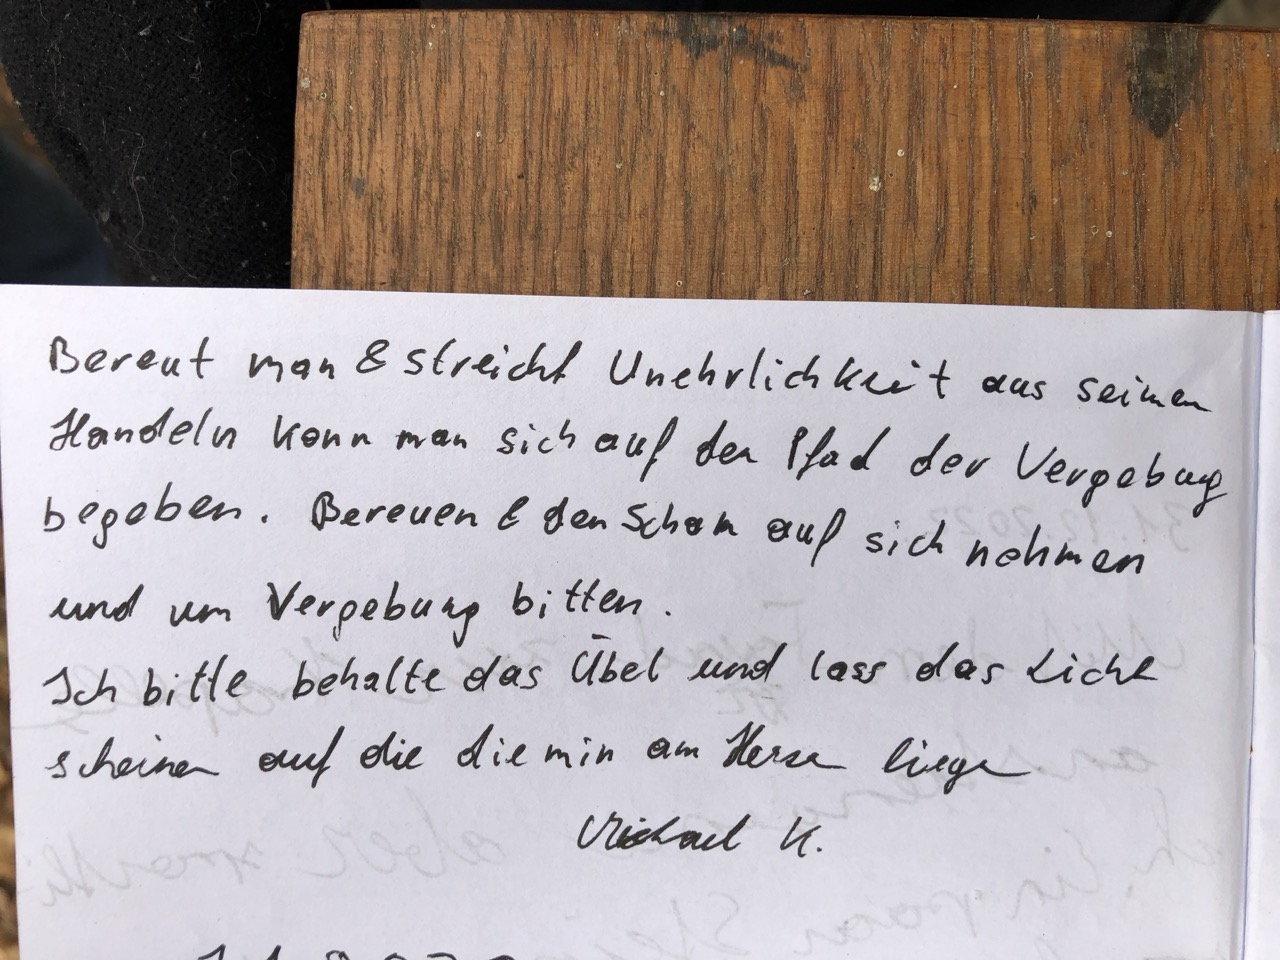 Bereut man & streicht Unehrlichkeit aus seinen
Handeln kann man sich auf den Pfad der Vergebung
begeben. Bereuen & den Scham auf sich nehmen
und um Vergebung bitten.
Ich bitte behalte das Übel und lass das Licht
scheinen auf die die min am Herzen liegen
Michael K.
31.12.2022